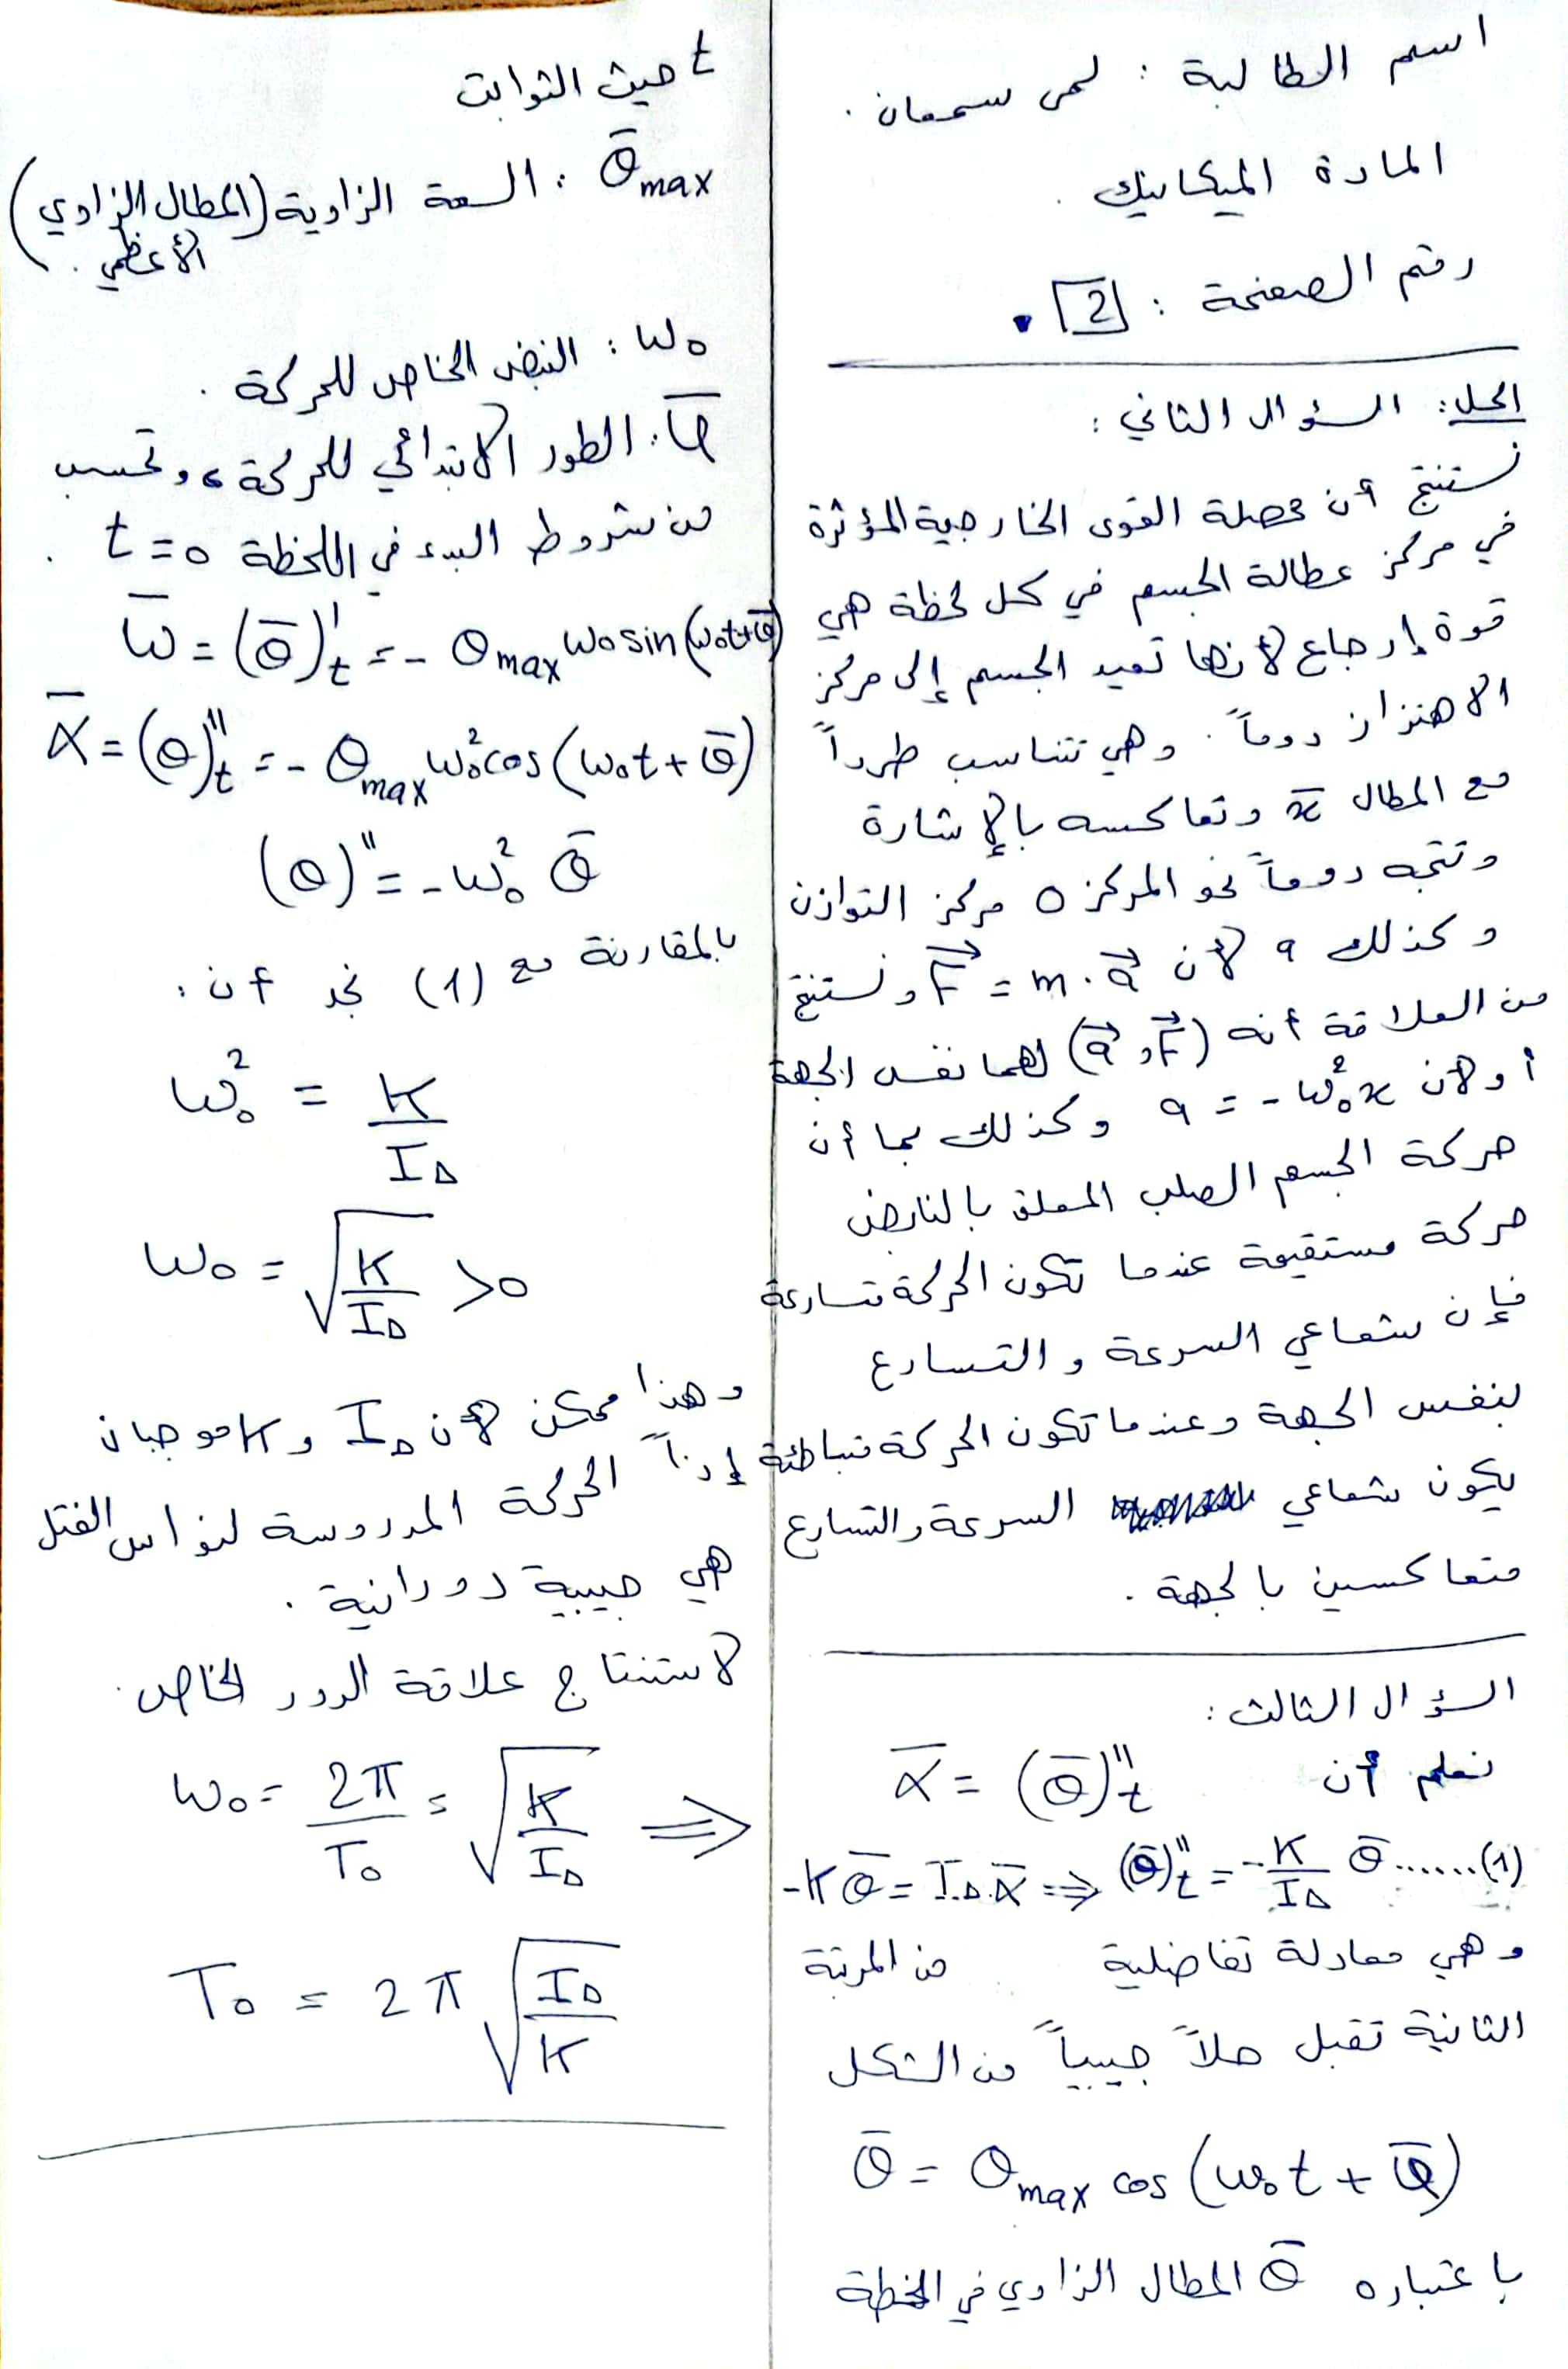 اسم الطالبة : لمى سمعان .
المادة الميكانيك .
رقم الصفحة : 2 .
الحل : السؤال الثاني :
نستنتج أن محصلة القوى الخارجية المؤثرة
في مركز عطالة الجسم في كل لحظة هي
قوة إرجاع لأنها تعيد الجسم إلى مركز
الاهتزاز دوماً . وهي تتناسب طرداً
مع المطال x̄ وتعاكسه بالإشارة
وتتجه دوماً نحو المركز o مركز التوازن
وكذلك a لأن F⃗ = m . a⃗ ونستنتج
من العلاقة أنه (a⃗ , F⃗) لهما نفس الجهة
أو لأن a = - ω₀² x وكذلك بما أن
حركة الجسم الصلب المعلق بالنابض
حركة مستقيمة عندما تكون الحركة متسارعة
فإن شعاعي السرعة والتسارع
بنفس الجهة وعندما تكون الحركة متباطئة
يكون شعاعي السرعة والتسارع
متعاكسين بالجهة .
السؤال الثالث :
نعلم أن ᾱ = (θ̄)″t
-Kθ̄ = I∆.ᾱ ⇒ (θ̄)″t = - K/I∆ θ̄ ......(1)
وهي معادلة تفاضلية من المرتبة
الثانية تقبل حلاً جيبياً من الشكل
θ̄ = θmax cos (ω₀t + φ̄)
باعتباره θ̄ المطال الزاوي في اللحظة
t حيث الثوابت
θ̄max : السعة الزاوية (المطال الزاوي
الأعظمي . )
ω₀ : النبض الخاص للحركة .
φ̄ : الطور الابتدائي للحركة ، وتحسب
من شروط البدء في اللحظة t = 0 .
ω̄ = (θ̄)′t = - θmax ω₀ sin (ω₀t+φ̄)
ᾱ = (θ)″t = - θmax ω₀² cos (ω₀t + φ̄)
(θ)″ = - ω₀² θ̄
بالمقارنة مع (1) نجد أن :
ω₀² = K/I∆
ω₀ = √(K/I∆) > 0
وهذا ممكن لأن I∆ و K موجبان
إذاً الحركة المدروسة لنواس الفتل
هي جيبية دورانية .
لاستنتاج علاقة الدور الخاص .
ω₀ = 2π/T₀ = √(K/I∆) ⇒
T₀ = 2π √(I∆/K)